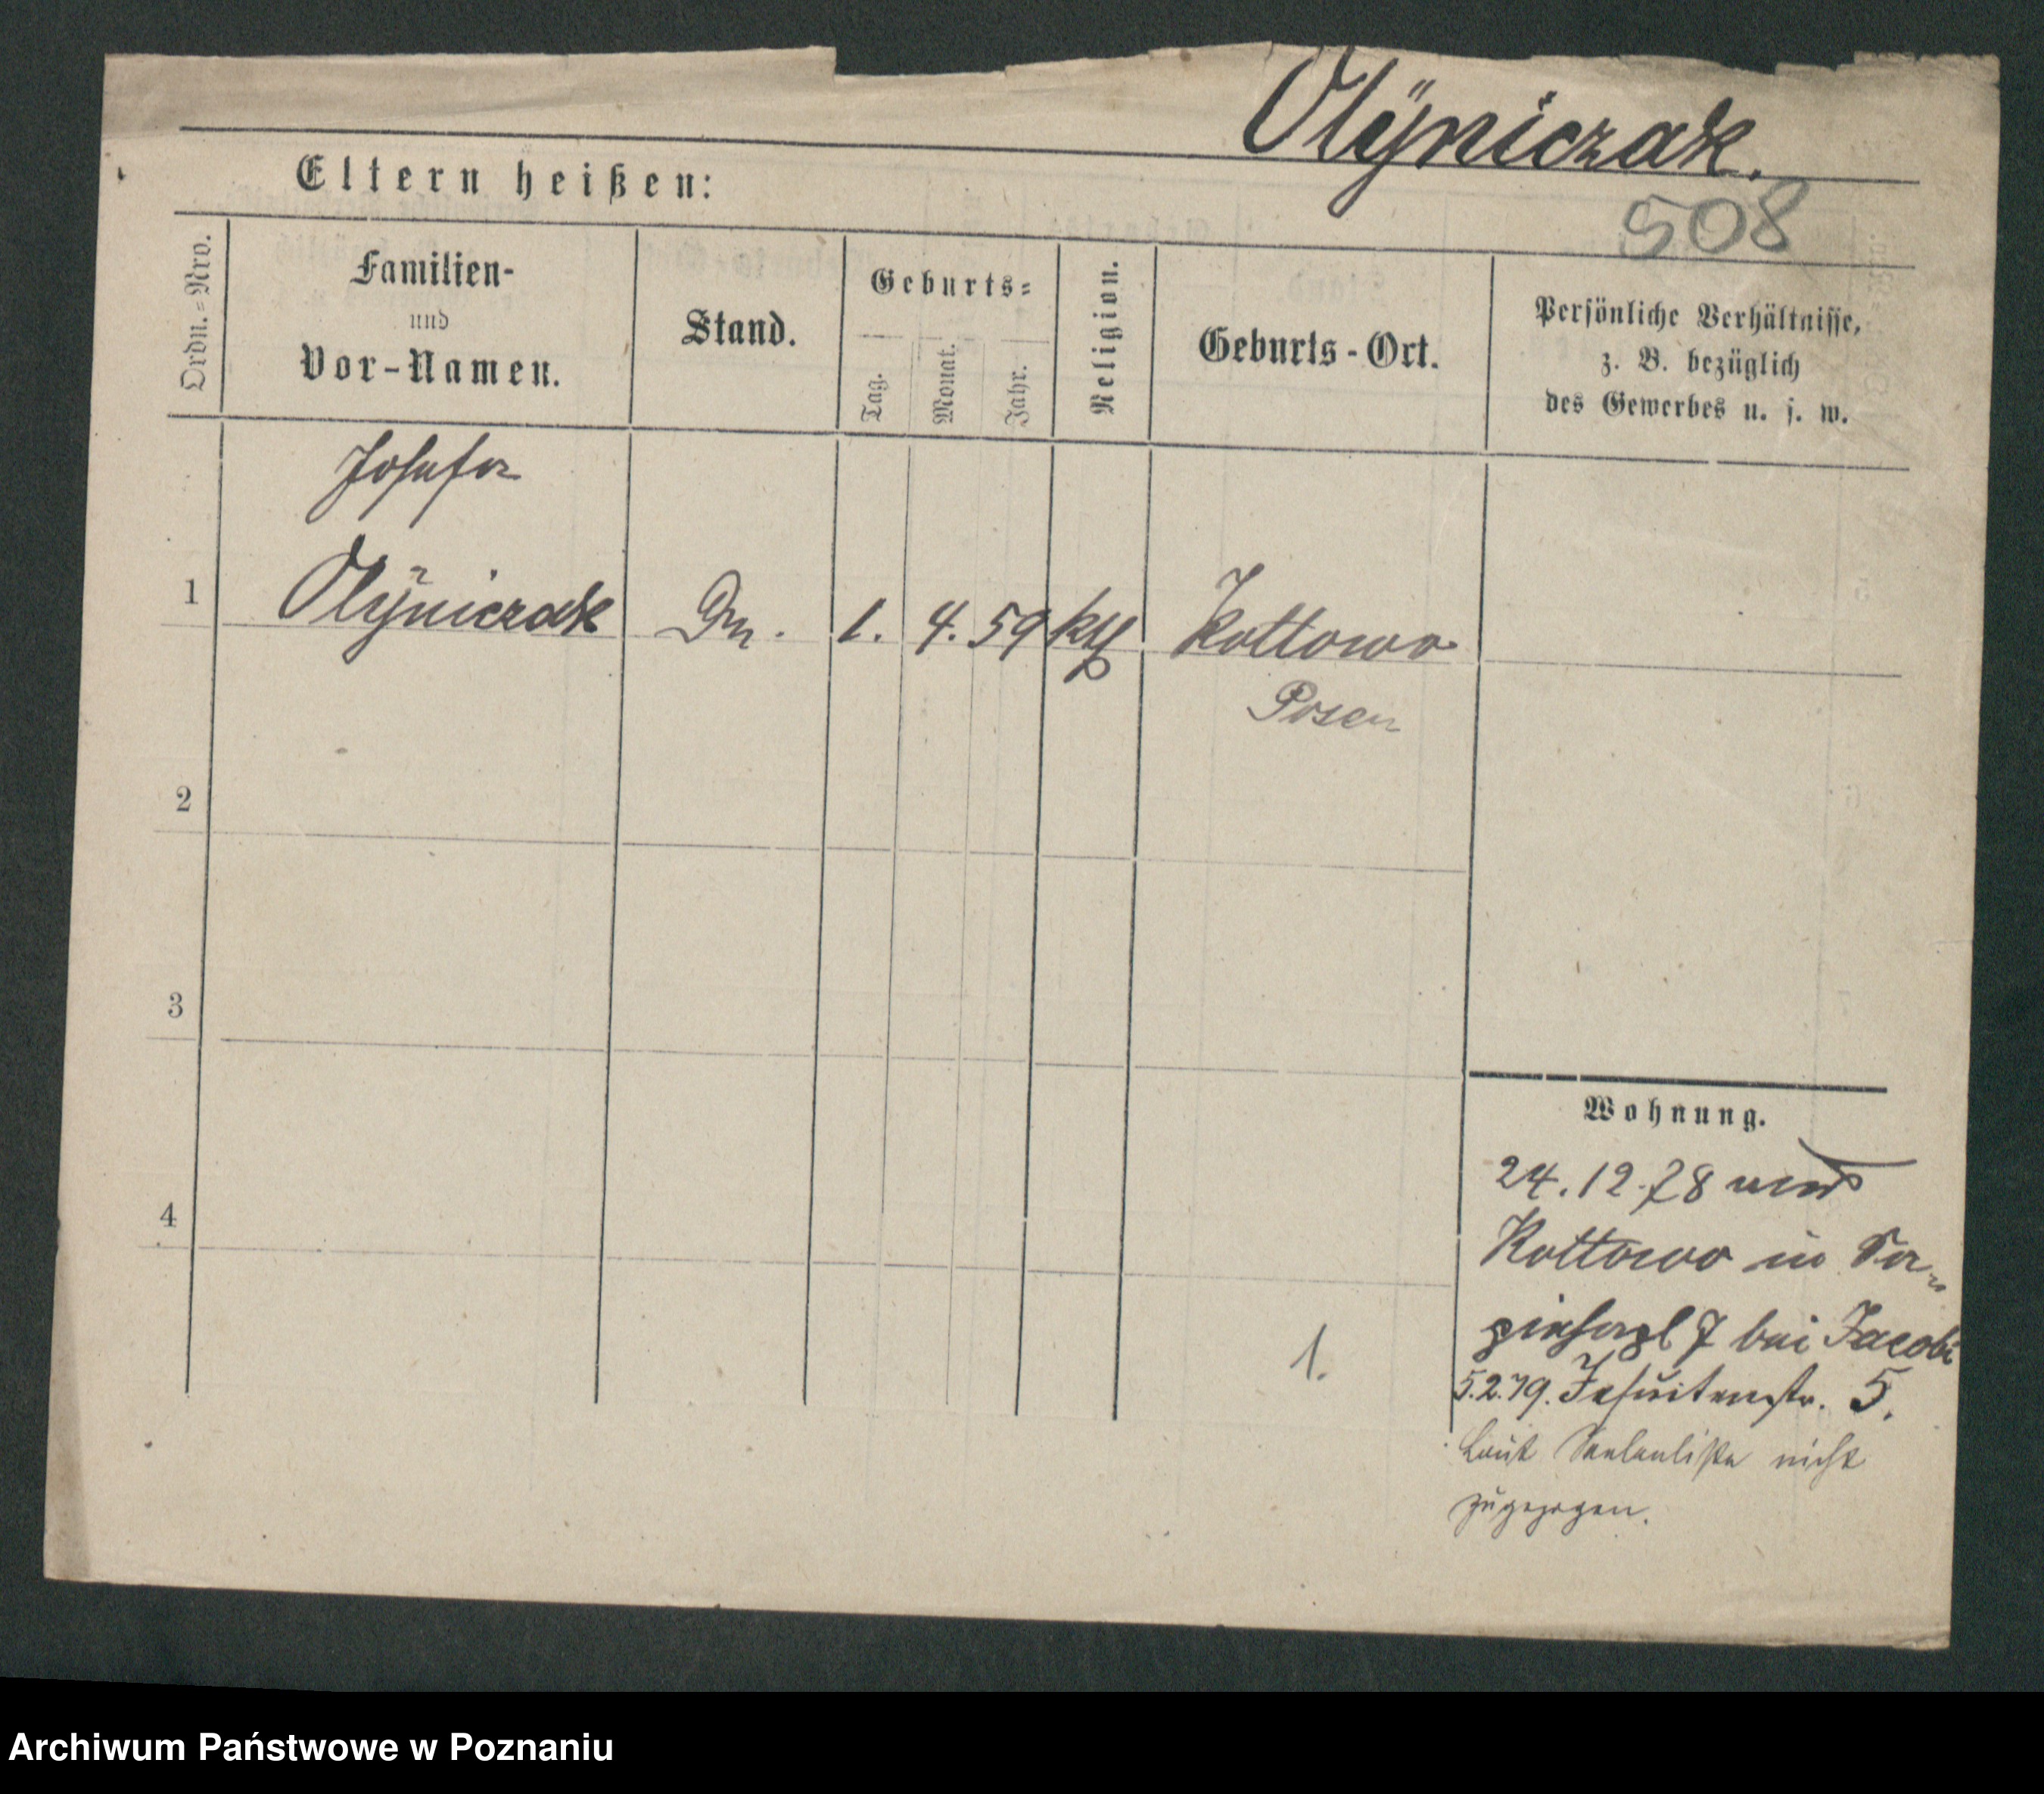 Olÿniczak.
Eltern heißen:
508
Ordn.=Nro.
Familien-
und
Vor-Namen.
Stand.
Geburts=
Tag.
Monat.
Jahr.
Religion.
Geburts-Ort.
Persönliche Verhältnisse,
z. B. bezüglich
des Gewerbes u. s. w.
Josefa
1 Olÿniczak 1. 4. 59 kth Kottowo
Posen
2
3
4
Wohnung.
24.12.78 von
Kottowo in Sa-
piehapl 7 bei Jacobi
5.2.79. Jesuitenstr. 5.
Laut Seelenliste nicht
zugezogen.
1.
Archiwum Państwowe w Poznaniu